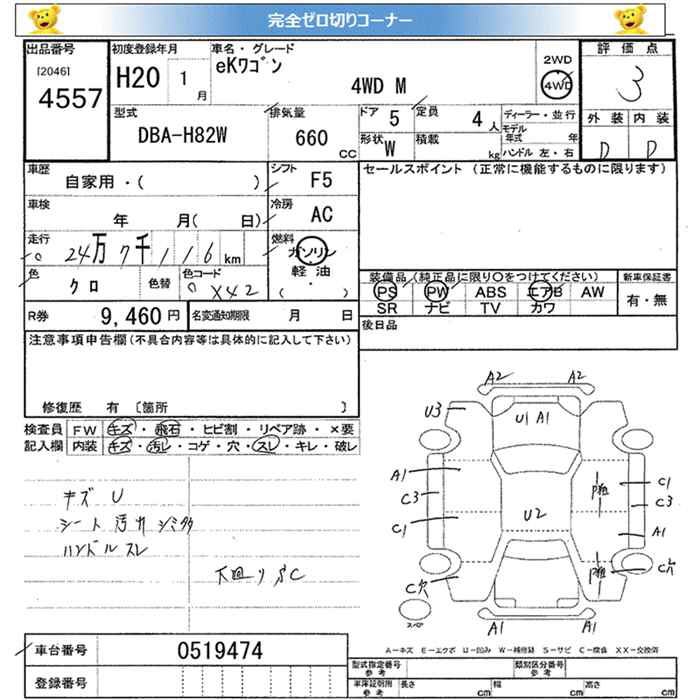 完全ゼロ切りコーナー
出品番号
[2046]
4557
初度登録年月
H20 1月
車名・グレード
eKワゴン
4WD M
2WD
4WD
評価点
3
外装 内装
D D
型式
DBA-H82W
排気量
660 CC
ドア 5
定員 4人
形状 W
積載 kg
ディーラー・並行
モデル年式 年
ハンドル 左・右
車歴
自家用・( )
シフト
F5
セールスポイント (正常に機能するものに限ります)
車検
年 月( 日)
冷房
AC
走行
24万7千116km
燃料
ガソリン
軽油
( ・ )
色
クロ
色替
色コード
X42
装備品 (純正品に限り○をつけてください)
PS PW ABS エアB AW
SR ナビ TV カワ
新車保証書
有・無
R券 9,460円
名変通知期限 月 日
後日品
注意事項申告欄(不具合内容等は具体的に記入して下さい)
修復歴 有 [箇所 ]
検査員記入欄
FW キズ・飛石・ヒビ割・リペア跡・×要
内装 キズ・汚レ・コゲ・穴・スレ・キレ・破レ
キズ U
シート 汚れ シミ多
ハンドル スレ
下廻り SC
A2 A2
U3
U1 A1
A1
C3
C1
U2
C1
C3
A1
C穴
C穴
スペア
A1 A1
A-キズ E-エクボ U-凹み W-補修跡 S-サビ C-腐食 XX-交換済
車台番号 0519474
登録番号
型式指定番号 参考
類別区分番号 参考
車庫証明用 参考
長さ cm
幅 cm
高さ cm